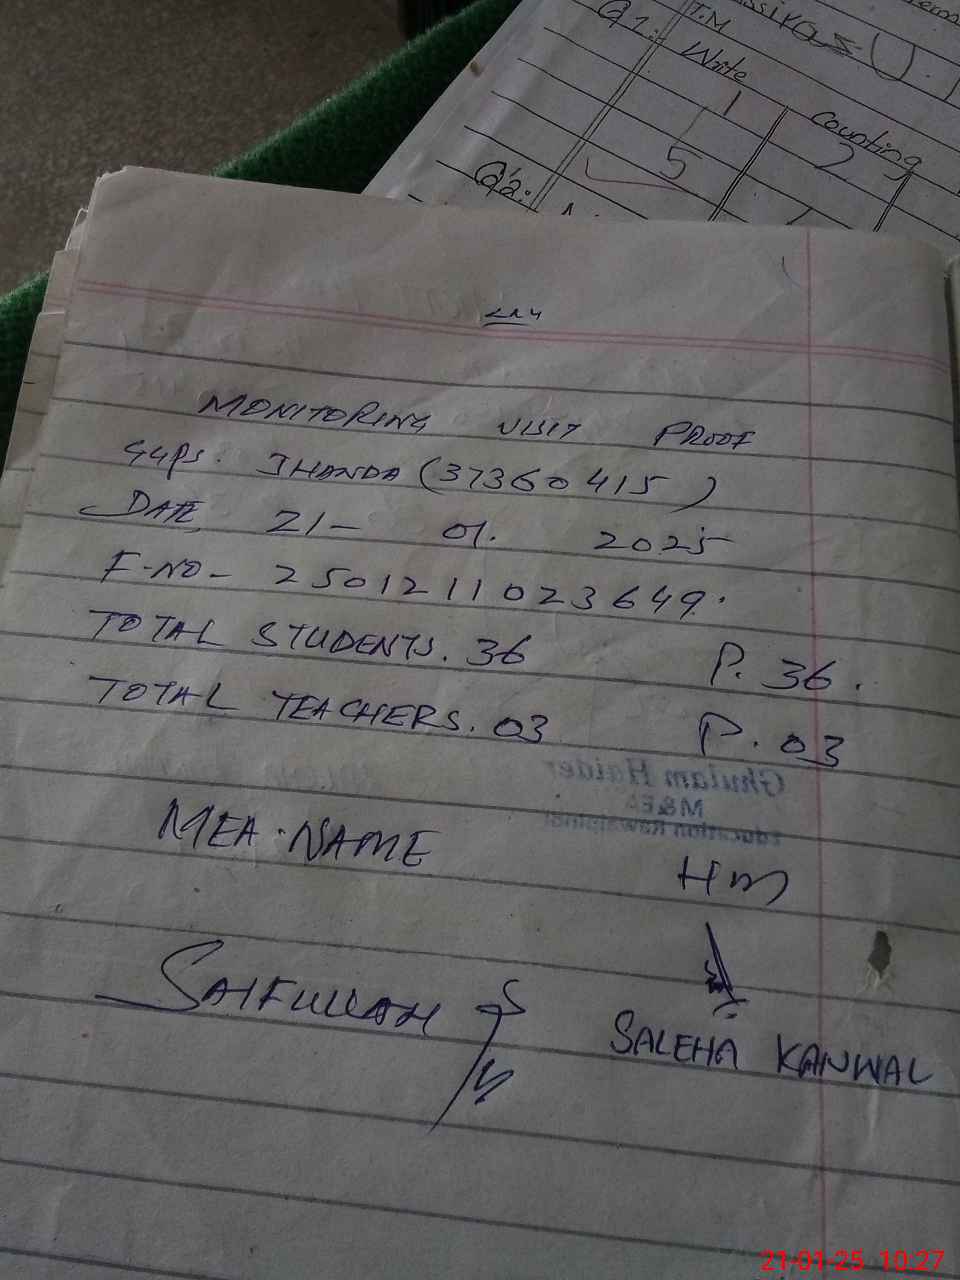 Q1:
T.M
Write
Counting
1
2
5
Q2:
MONITORING VISIT PROOF
GGPS. JHANDA (37360415)
DATE 21- 01. 2025
F-NO- 2501211023649.
TOTAL STUDENTS. 36 P. 36.
TOTAL TEACHERS. 03 P. 03
Ghulam Haider
M&EA
Education Rawalpindi
MEA. NAME
HM
SAIFULLAH
SALEHA KANWAL
21-01-25 10:27